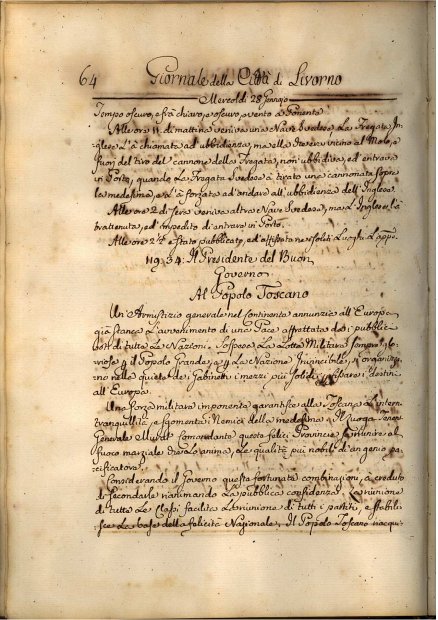 64 Giornale della Città di Livorno
Mercoldì 28 Gennajo
Tempo oscuro, e frà chiaro, e oscuro, e vento a Ponente
Alle ore 11. di mattina veniva una Nave Svedese, La Fregata In-
glese L'à chiamata ad ubbidienza, ma ella vicino al Molo, e
fuori del tiro del cannone della Fregata, non ubbidiva, ed entrava
in Porto, quando La Fregata à tirato una cannonata sopra
la medesima, e l'à forzata ad andare all'ubbidienza dell'Inglese.
Alle ore 2 di sera veniva altra Nave Svedese, ma L'Inglese l'à
trattenuta, ed impedito di entrare in Porto.
Alle ore 2 è stato pubblicato, ed affisso ne soliti Luoghi
Il Presidente del Buon
Governo
Al Popolo Toscano
Un'Armistizio generale nel Continente annunzia all'Europa
già stanca L'avvenimento di una Pace affrettata dai pubblici
voti di tutte Le Nazioni. Sospesa La Lotta Militare sempre glo-
riosa p il Popolo Grande, e p La Nazione Invincibile, si organizze-
ranno nella quiete dei Gabinetti i mezzi più solidi i destini
all'Europa.
Una Forza militare imponente garantisce alla Toscana L'interna
tranquillità, e sgomenta i Nemici della medesima. Il Luogo Tenente
Generale Murat Comandante queste felici Provincie riunire al
fuoco marziale Le qualità più nobili di un genio pa-
cificatore.
Considerando il Governo queste fortunate combinazioni, à creduto
di secondarle rianimando La pubblica confidenza. La riunione
di tutte Le Classi facilita La riunione di tutti i partiti, e stabili-
sce La base della felicità Nazionale. Il Popolo Toscano riacqui-